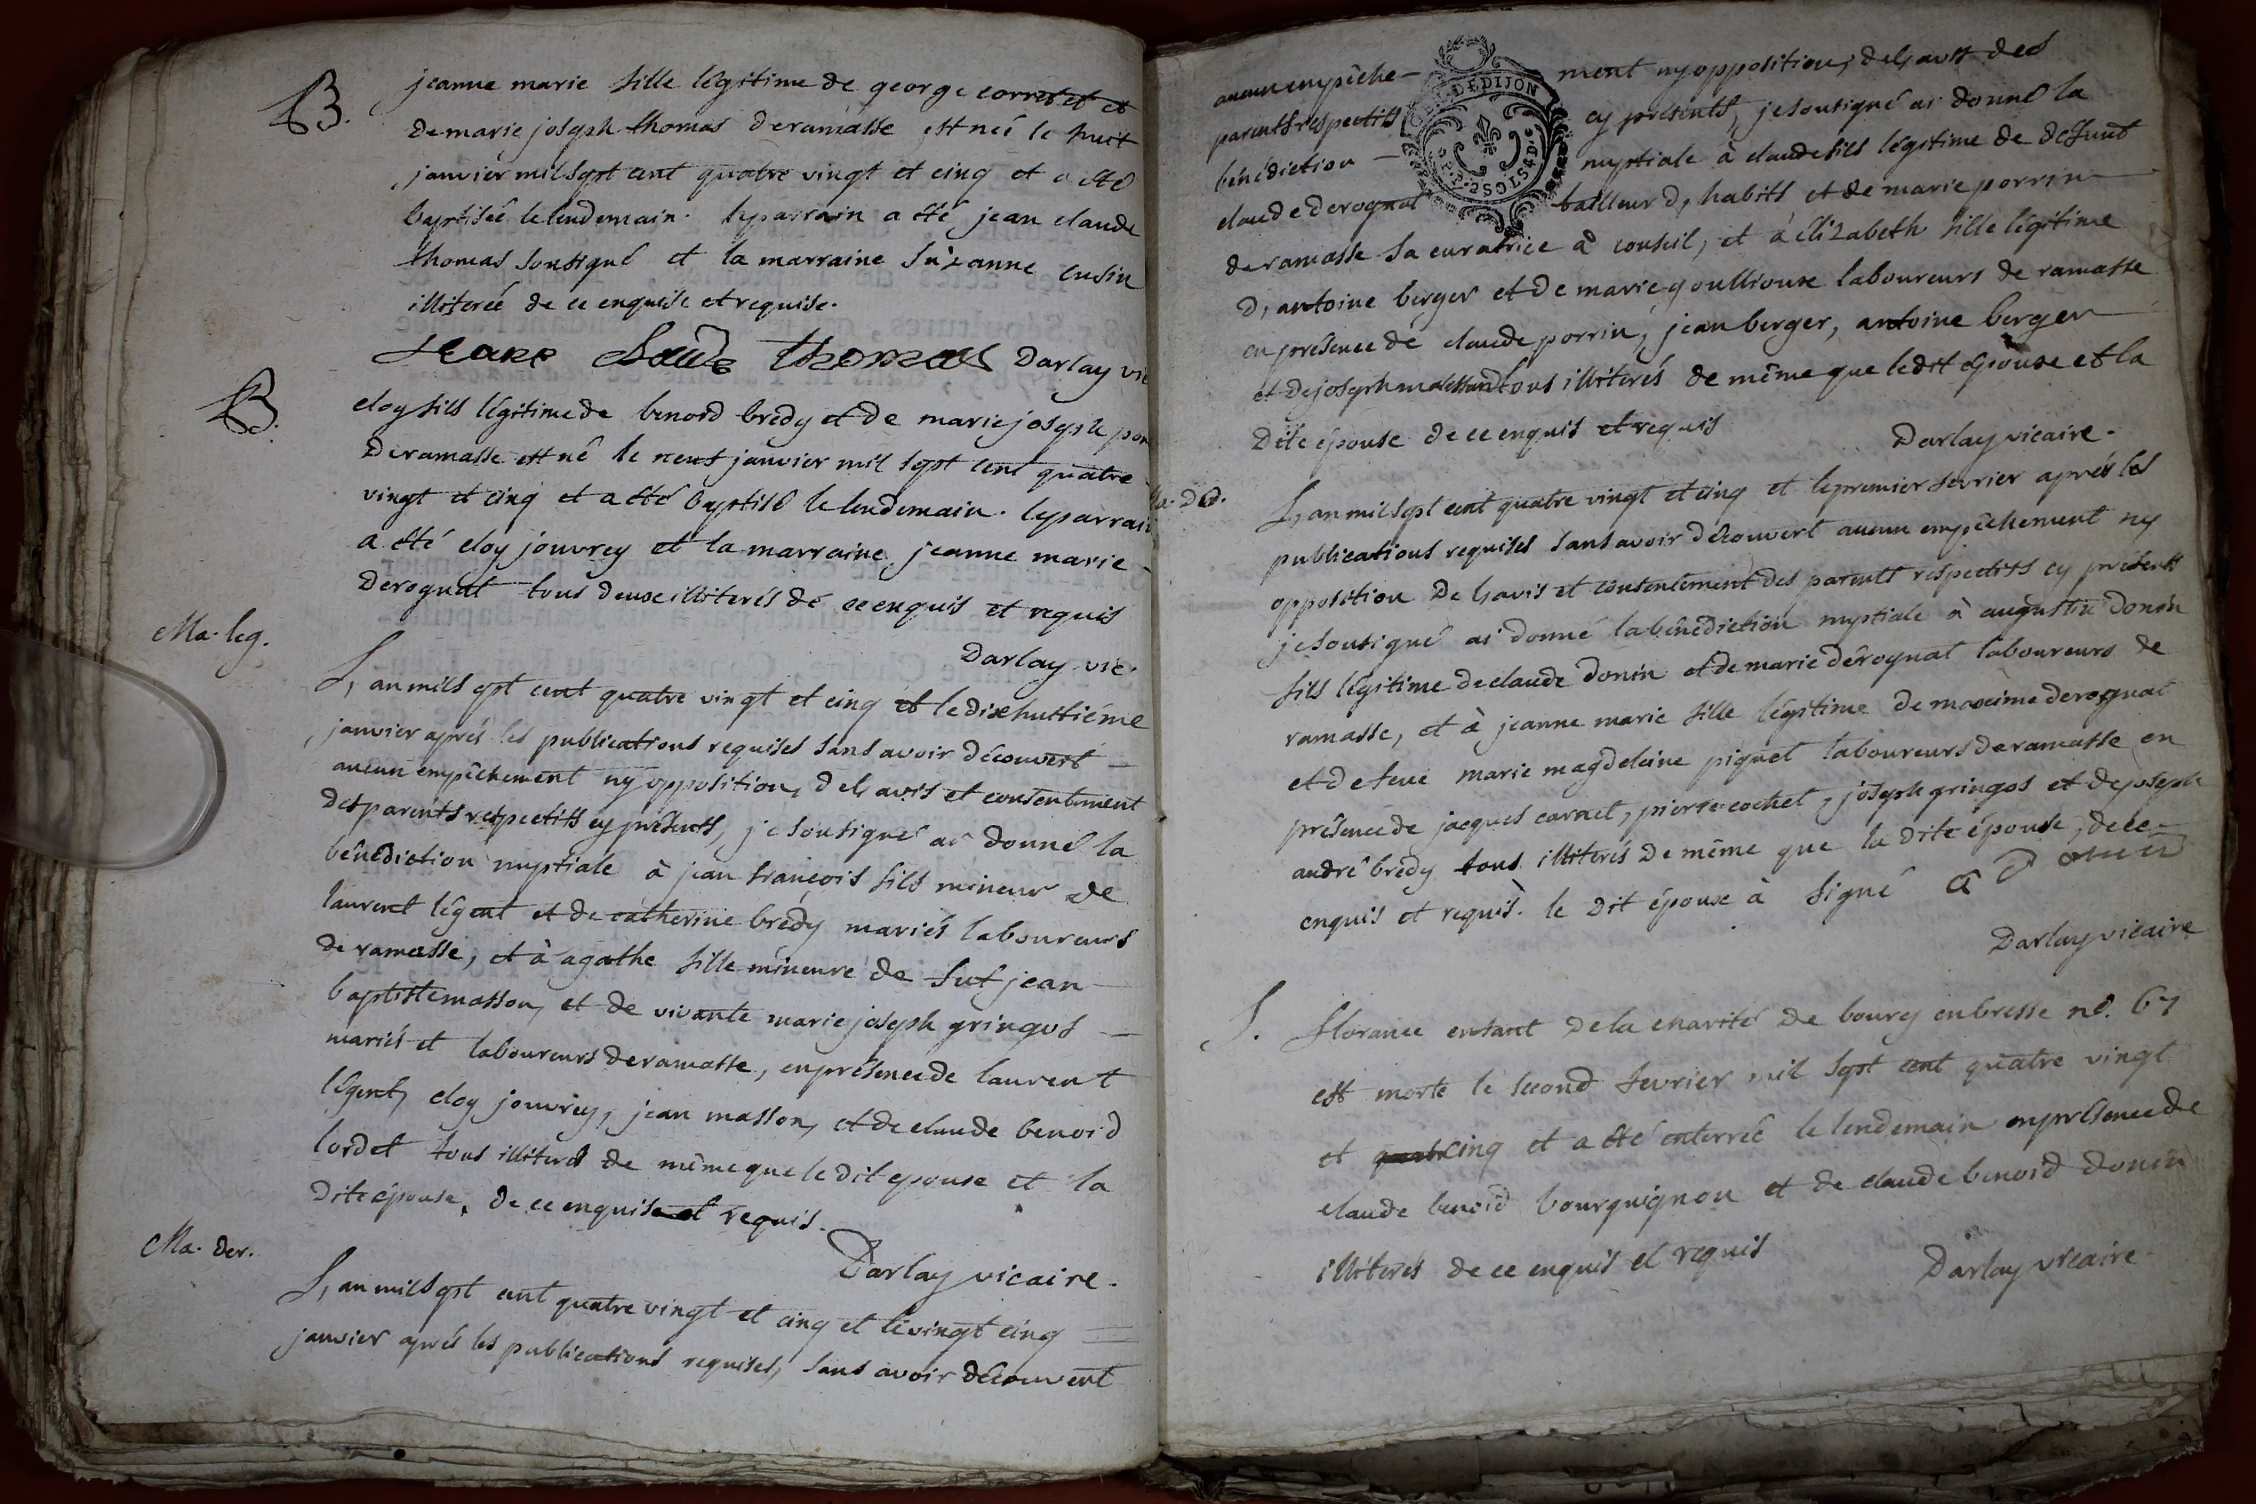 B. jeanne marie fille légitime de george corret et
de marie joseph thomas de ramasse est née le huit
janvier mil sept cent quatre vingt et cinq et a été
baptisée le lendemain. le parrain a été jean claude
thomas sousigné et la marraine suzanne cusin
illiterée de ce enquise et requise.
jeane thomas Darlay vic
B. eloy fils légitime de benoid brédy et de marie joseph
de ramasse est né le neuf janvier mil sept cent quatre
vingt et cinq et a été baptisé le lendemain. le parrain
a été eloy jouvrey et la marraine jeanne marie
derognat tous deux illiterés de ce enquis et requis
Darlay vic.
Ma. leg. L, an mil sept cent quatre vingt et cinq et le dixhuttiéme
janvier aprés les publications requises sans avoir découvert
aucun empêchement ny opposition, de l, avis et consentement
des parents respectifs cy présents, je sousigné ai donné la
bénédiction nuptiale à jean françois fils mineur de
laurent légent et de catherine brédy mariés laboureurs
de ramasse, et à agathe fille mineure de fut jean
baptiste masson, et de vivante marie joseph gringos
mariés et laboureurs de ramasse, en présence de laurent
légent, eloy jouvrey, jean masson, et de claude benoid
loidet tous illiterés de même que le dit epoux et la
dite épouse, de ce enquis et requis.
Darlay vicaire.
Ma. der. L, an mil sept cent quatre vingt et cinq et le vingt cinq
janvier aprés les publications requises, sans avoir découvert
aucun empêche- ment ny opposition, de l, avis des
parents respectifs cy présents, je sousigné ai donné la
bénédiction nuptiale à claude fils légitime de défunt
claude derognat bailleur d, habits et de marie porrin
de ramasse sa curatrice à conseil, et à élizabeth fille légitime
d, antoine berger et de marie goullioux laboureurs de ramasse
en présence de claude porrin, jean berger, antoine berger
et de joseph tous illiterés de même que le dit époux et la
dite épouse de ce enquis et requis
Darlay vicaire.
L, an mil sept cent quatre vingt et cinq et le premier fevrier aprés les
publications requises sans avoir découvert aucun empêchement ny
opposition de l, avis et consentement des parents respectifs cy présents
je sousigné ai donné la bénédiction nuptiale à augustin donin
fils légitime de claude donin et de marie dérognat laboureurs de
ramasse, et à jeanne marie fille légitime de maxime derognat
et de feue marie magdeleine piquet laboureurs de ramasse en
présence de jacques carret, pierre cochet, joseph gringos et de joseph
andré brédy tous illiterés de même que la dite épouse, de ce
enquis et requis. le dit époux à signé a Donin
Darlay vicaire
S. florance enfant de la charité de bourg en bresse n°. 67
est morte le second fevrier mil sept cent quatre vingt
et cinq et a été enterrée le lendemain en présence de
claude benoid bourguignon et de claude benoid donin
illiterés de ce enquis et requis
Darlay vicaire